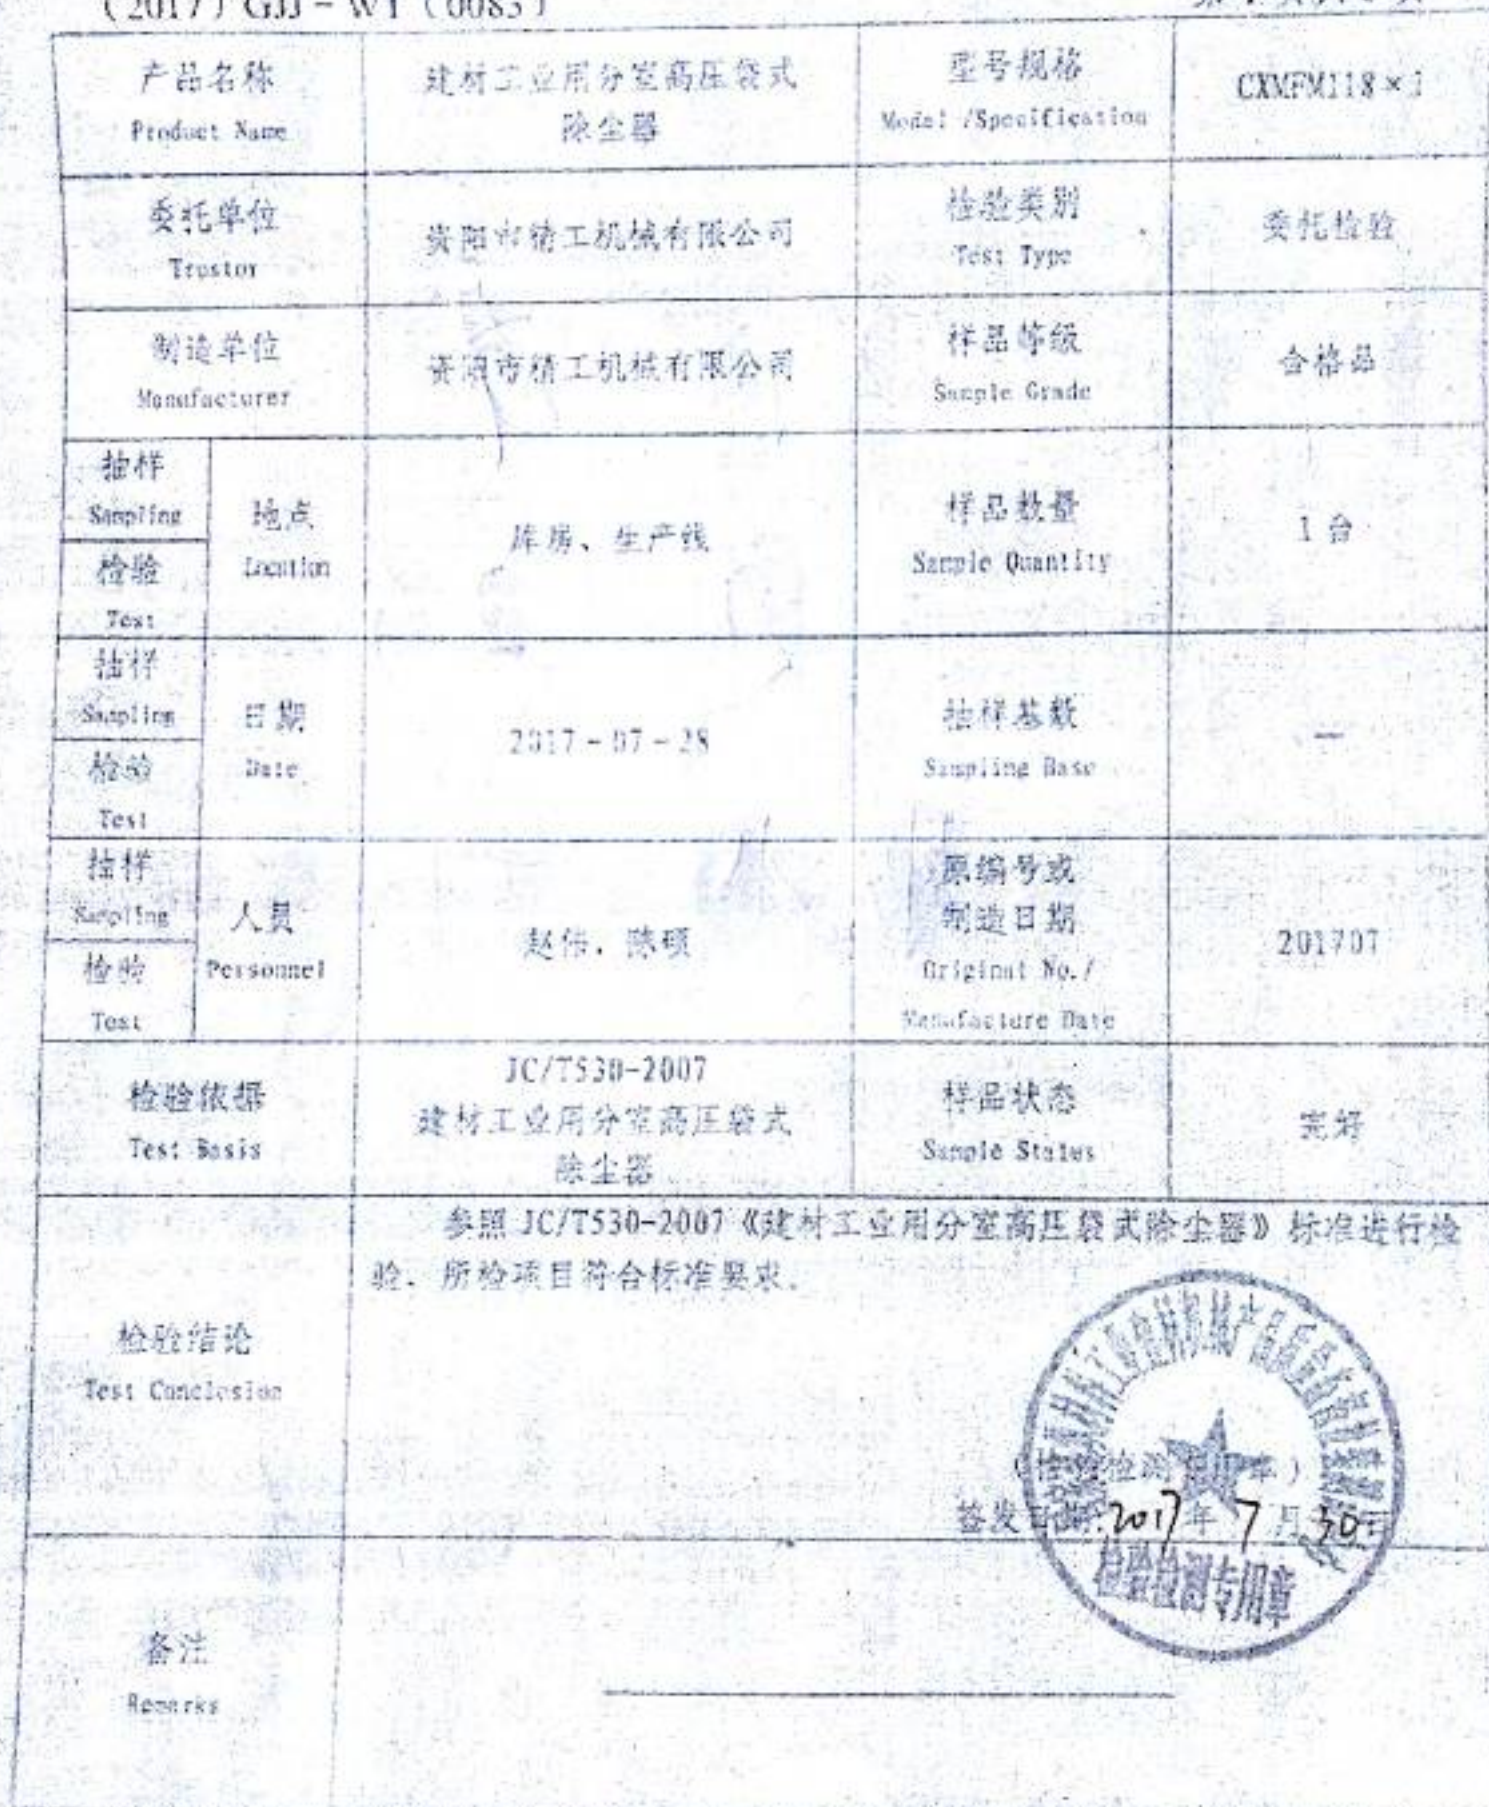 （2017）GJJ－WT（0083）
产品名称
Product Name
建材工业用分室高压袋式
除尘器
型号规格
Model /Specification
委托单位
Trustor
市精工机械有限公司
检验类别
Test Type
委托检验
制造单位
Manufacturer
市精工机械有限公司
样品等级
Sample Grade
合格品
抽样
Sampling
检验
Test
地点
Location
库房、生产线
样品数量
Sample Quantity
1 台
抽样
Sampling
检验
Test
日期
Date
2017－07－28
抽样基数
Sampling Base
—
抽样
Sampling
检验
Test
人员
Personnel
赵伟、陈硕
原编号或
制造日期
Original No./
Manufacture Date
201707
检验依据
Test Basis
JC/T530-2007
建材工业用分室高压袋式
除尘器
样品状态
Sample States
完好
检验结论
Test Conclusion
参照 JC/T530-2007《建材工业用分室高压袋式除尘器》标准进行检
验，所检项目符合标准要求。
签发日期:2017年 7 月 30日
检验检测专用章
备注
Remarks